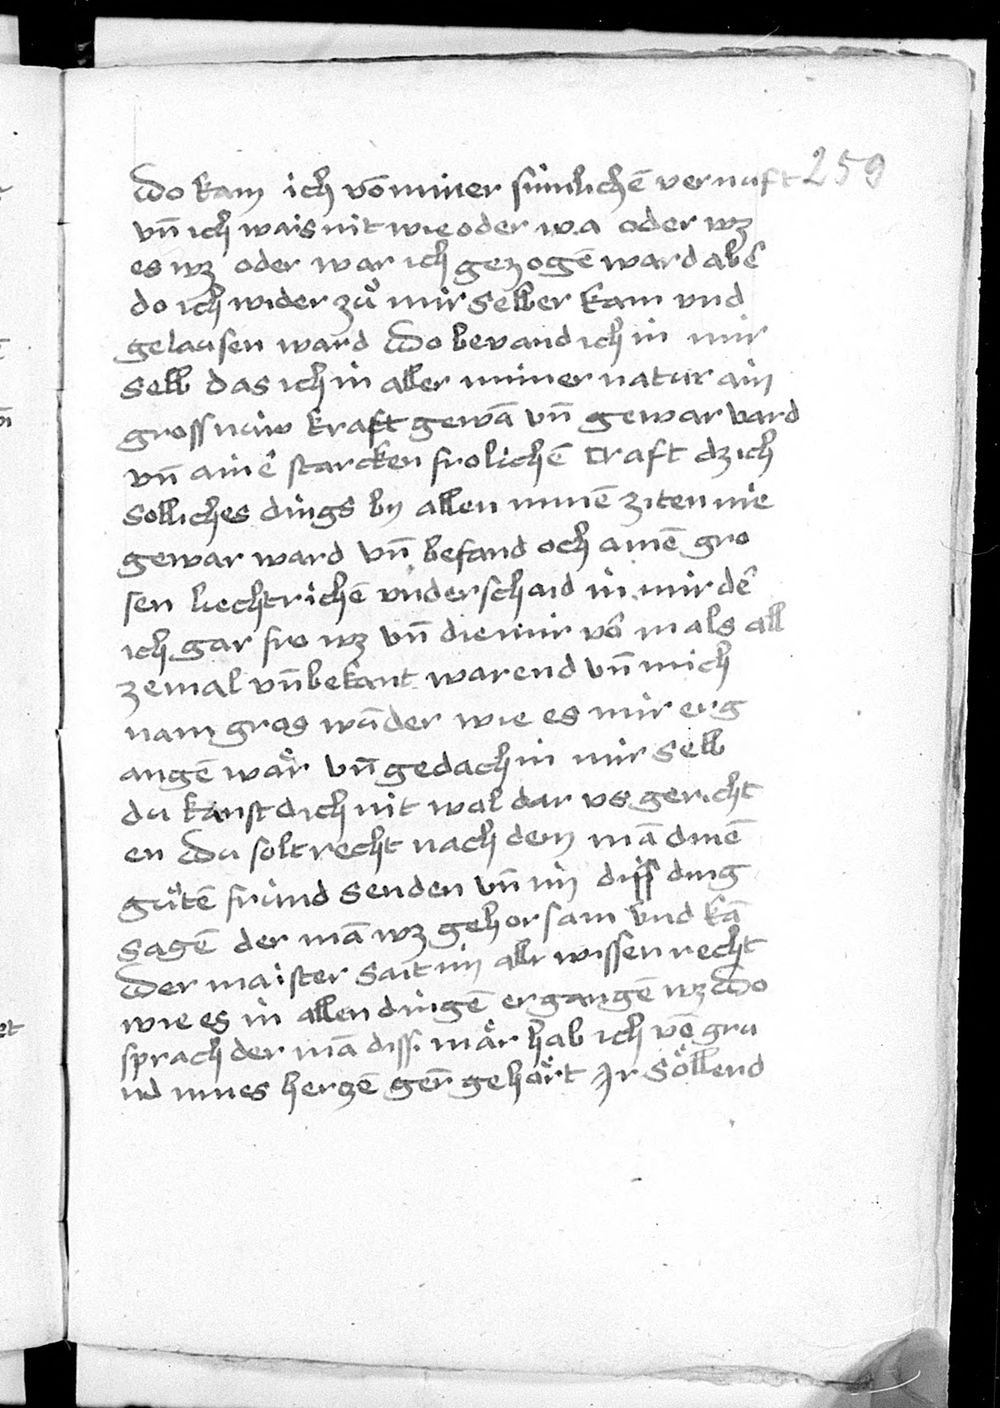 Do kam ich vō miner sinnlichē vernuft 259
vn̄ ich wais nit wie oder wa oder wz
es wz oder war ich gezogē ward abē
do ich wider zuͦ mir selber kam vnd
gelausen ward Do bevand ich in mir
selb das ich in aller miner natur ain
gross nuiw kraft gewā vn̄ gewar vard
vn̄ ainē starcken frolichē craft dz ich
solliches dings by allen minē ziten nie
gewar ward vn̄ befand och ainē gro
sen liechtrichē vnderschaid in mir dē
ich gar fro wz vn̄ die mir vō mals all
zemal vn̄bekant warend vn̄ mich
nam gros wūder wie es mir erg
angē waͤr vn̄ gedach in mir selb
du kanst dich nit wol dar vs gericht
en Du solt recht nach dem mā dinē
guͤtē fruind senden vn̄ im diss ding
sagē der mā wz gehorsam vnd kā
Der maister sait im alr wissen recht
wie es in allen dingē ergangē wz Do
sprach der mā diss maͤr hab ich vō gru
nd mines herzē gern̄ gehoͤrt Ir soͤllend